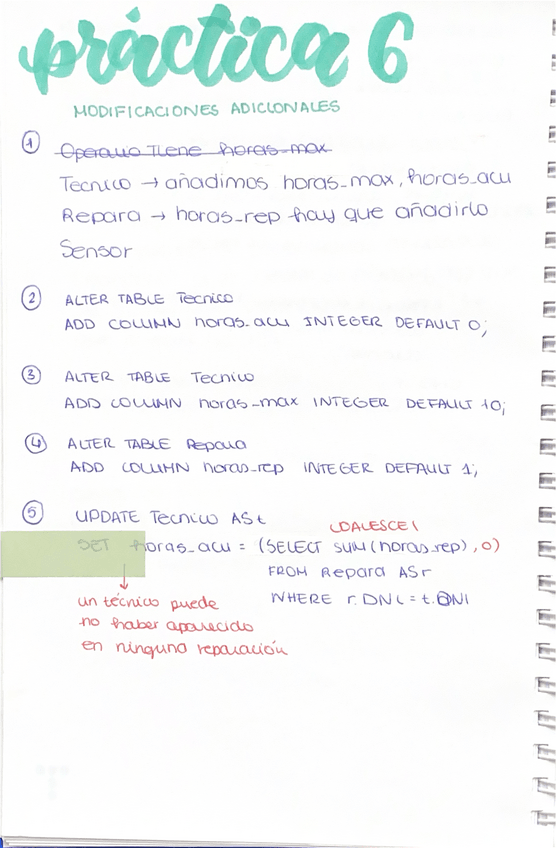 práctica 6
MODIFICACIONES ADICIONALES
① Operario Tiene horas_max
Tecnico → añadimos horas_max, horas_acu
Repara → horas_rep hay que añadirlo
Sensor
② ALTER TABLE Tecnico
ADD COLUMN horas_acu INTEGER DEFAULT 0;
③ ALTER TABLE Tecnico
ADD COLUMN horas_max INTEGER DEFAULT 10;
④ ALTER TABLE Repara
ADD COLUMN horas_rep INTEGER DEFAULT 1;
⑤ UPDATE Tecnico AS t
COALESCE(
SET horas_acu = (SELECT SUM(horas_rep),0)
FROM Repara AS r
WHERE r.DNI = t.DNI
un técnico puede
no haber aparecido
en ninguna reparación